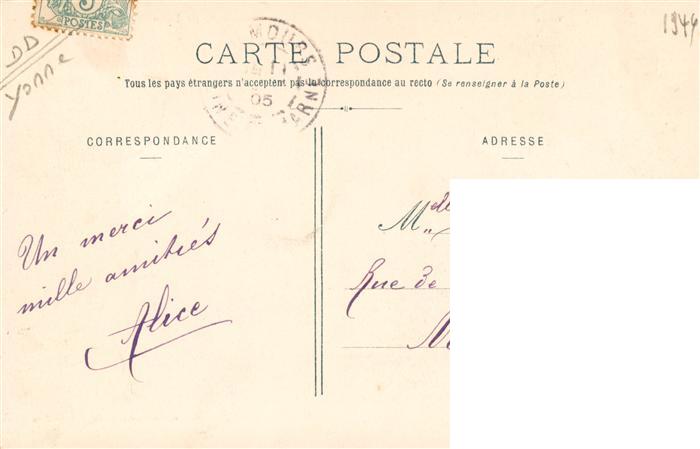 5
POSTES
1944
DD
Yonne
CARTE POSTALE
Tous les pays étrangers n'acceptent pas la correspondance au recto (Se renseigner à la Poste)
05
CORRESPONDANCE
Un merci
mille amitiés
Alice
ADRESSE
Melle
Rue de